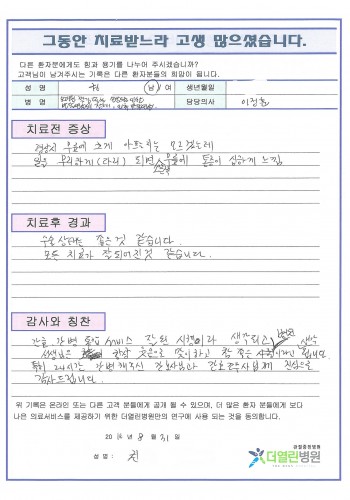 그동안 치료받느라 고생 많으셨습니다.
다른 환자분에게도 힘과 용기를 나누어 주시겠습니까?
고객님이 남겨주시는 기록은 다른 환자분들의 희망이 됩니다.
성 명 남 / 여 생년월일
병 명 담당의사 이정훈
치료전 증상
평상시 무릎에 크게 아프지는 모르겠는데
일을 무리하게 (다리) 되면 무릎에 통증이 심하게 느낌
치료후 경과
수술 상태는 좋은것 같습니다.
모든 치료가 잘되어진것 같습니다.
감사와 칭찬
간호 간병 통합 서비스 잘된 시행이라 생각되고
선생님은 항상 웃음으로 참 좋은 사람이라고
특히 24시간 간병해주신 간호사님과 간호조무사님께 진심으로
감사드립니다.
위 기록은 온라인 또는 다른 고객 분들에게 공개 될 수 있으며, 더 많은 환자 분들에게 보다
나은 의료서비스를 제공하기 위한 더열린병원만의 연구에 사용 되는 것을 동의합니다.
2016년 8월 31일
성 명 :
관절중점병원
더열린병원